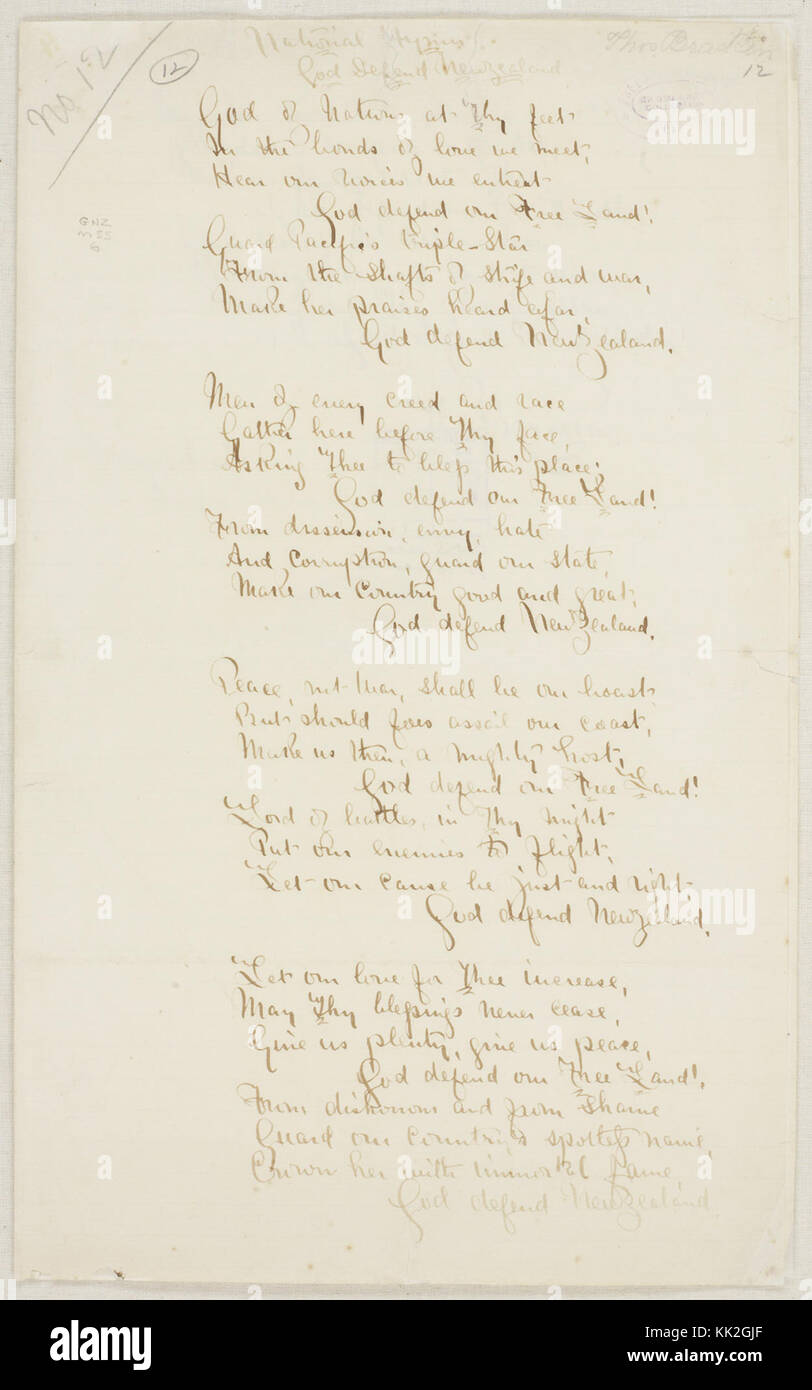 No 12
12
National Hymn
Thos Bracken
12
God Defend New Zealand
God of Nations at Thy feet
In the bonds of love we meet,
Hear our voices we entreat
God defend our Free Land!
Guard Pacific's triple-Star
From the shafts of strife and war,
Make her praises heard afar,
God defend New Zealand.
GNZ
MSS
6
Men of every creed and race
Gather here before Thy face,
Asking Thee to bless this place;
God defend our Free Land!
From dissension, envy, hate
And corruption, guard our State,
Make our Country good and great,
God defend New Zealand.
Peace, not War, shall be our boast
But should foes assail our coast,
Make us then, a mighty host,
God defend our Free Land!
Lord of battles, in Thy might
Put our enemies to flight,
Let our cause be just and right
God defend New Zealand.
Let our love for Thee increase,
May Thy blessings never cease,
Give us plenty, give us peace,
God defend our Free Land!
From dishonour and from Shame
Guard our Country's spotless name,
Crown her with immortal fame
God defend New Zealand
alamy
alamy stock photo
KK2GJF
www.alamy.com